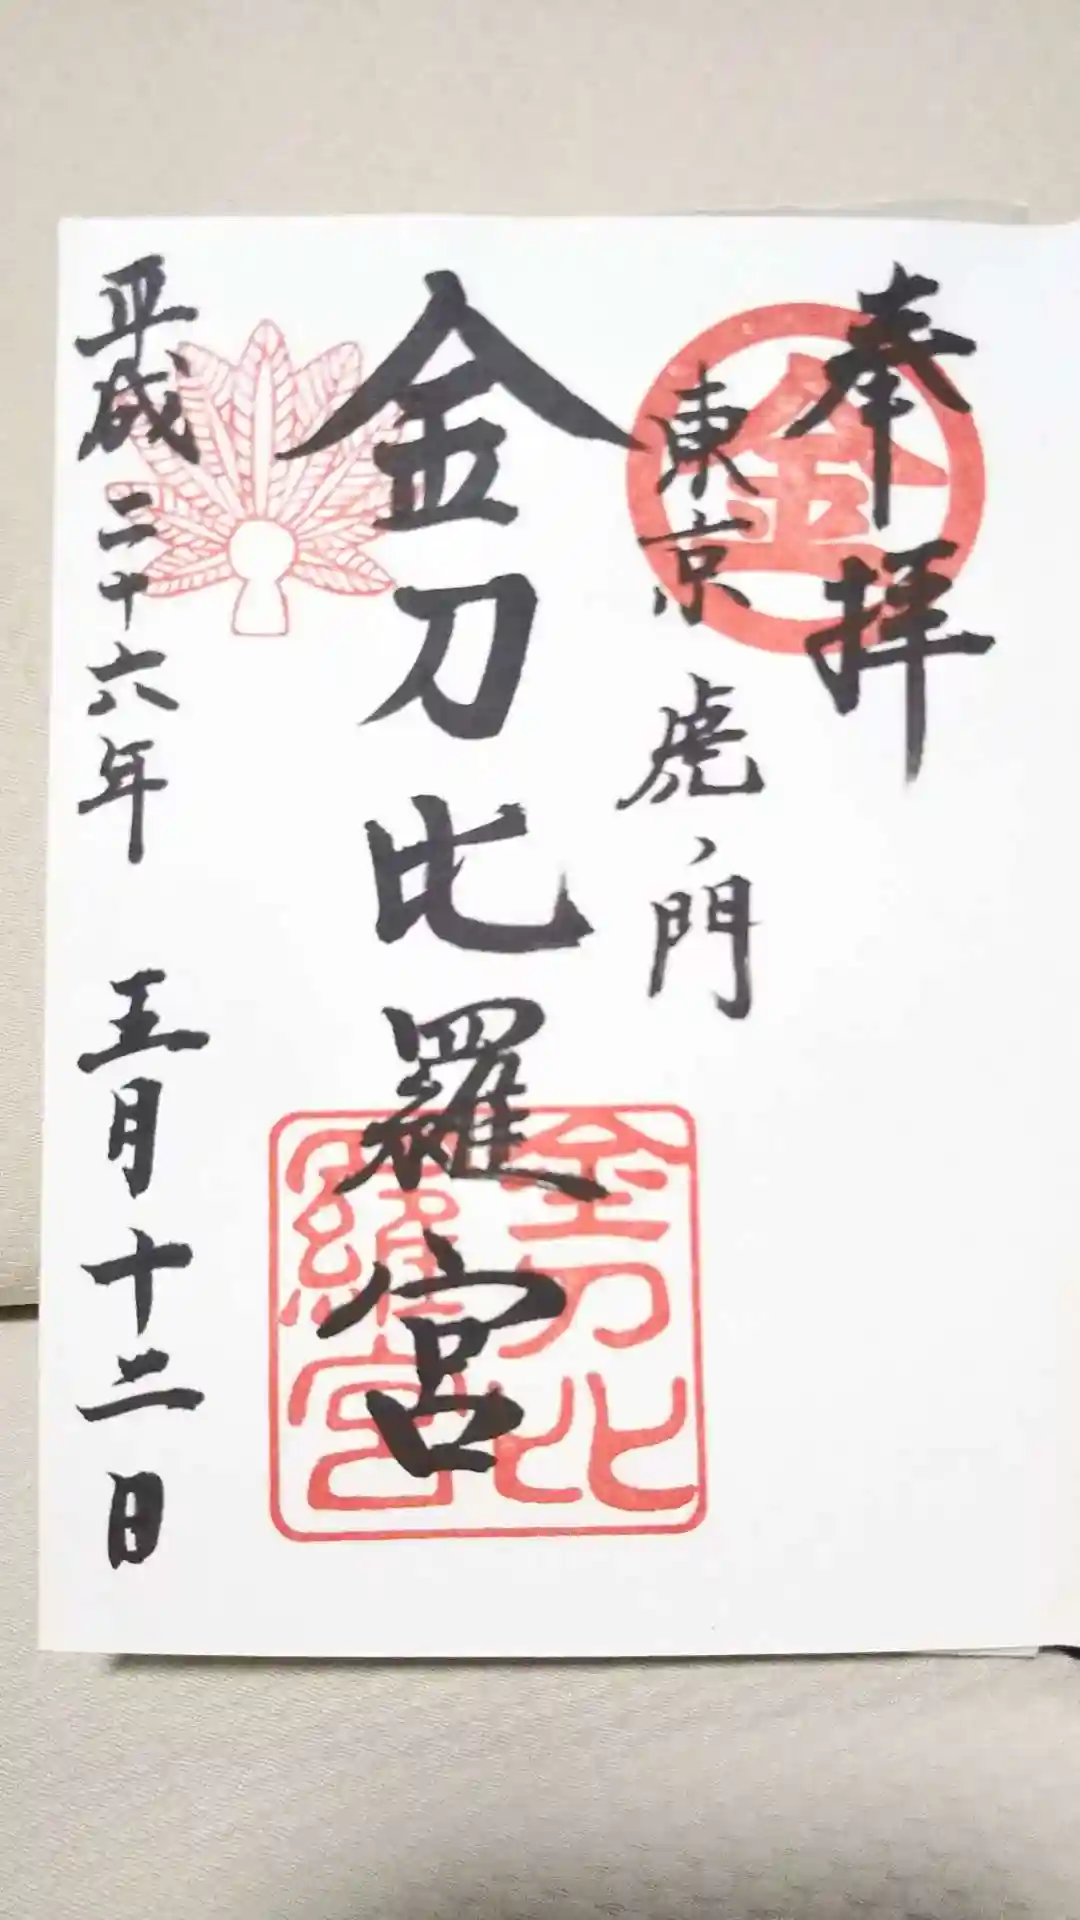 奉拝
金
東京 虎ノ門
金刀比羅宮
金刀比
羅宮
平成二十六年 五月十二日